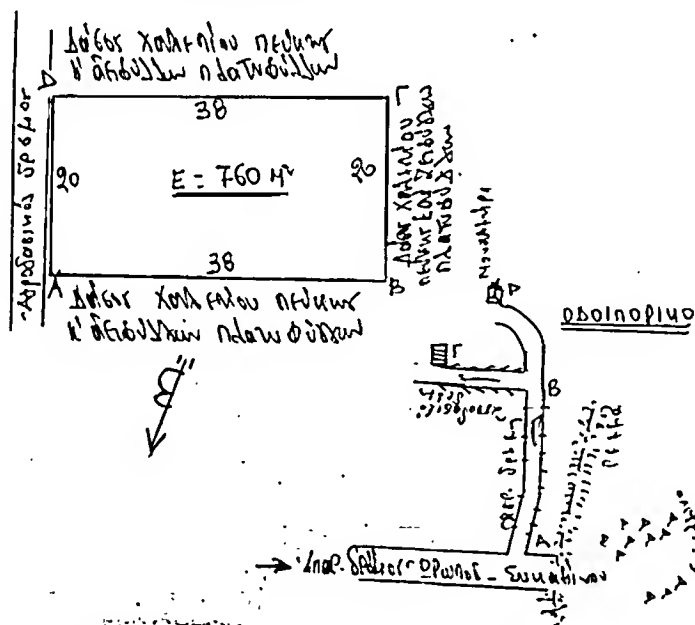 Δάσος χαλεπίου πεύκης
κ' ἀειφύλλων πλατυφύλλων
Δ
Γ
38
-Αγροδασικός δρόμος
20
E = 760 M²
20
Δάσος χαλεπίου
πεύκης και ἀειφύλλων
πλατυφύλλων
38
A
B
Δάσος χαλεπίου πεύκης
κ' ἀειφύλλων πλατυφύλλων
Μοναστήρι
Δ
ΟΔΟΙΠΟΡΙΚΟ
Γ
B
B
Ρέμμα
A
δρόμος - Ωρωπός - Συκαμίνου